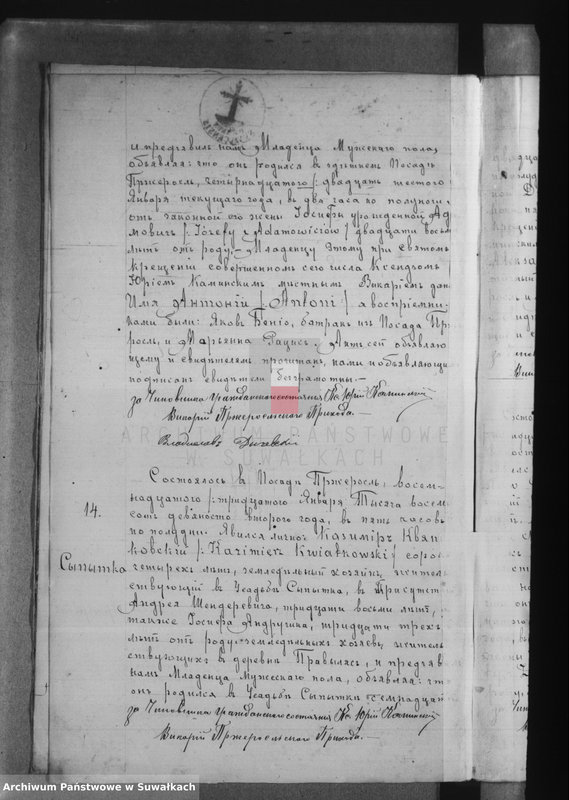 и представилъ намъ Младенца Мужскаго пола,
объявляя: что онъ родился въ здѣшнемъ Посадѣ
Пржеросль, четырнадцатого /: двадцать шестого
Января текущаго года, въ два часа по полуночи
отъ законной его жены Іосифы урожденной Ада
мовичъ /: Józefy Adamowiczów / двадцати восьм
лѣтъ отъ роду. Младенцу этому при Святомъ
Крещеніи совершенномъ сего числа Ксендзомъ
Юріемъ Каминскимъ мѣстнымъ Викаріемъ дан
Имя Антоній /: Antoni / а воспріемни-
ками были: Яковъ Геніо, батракъ изъ Посада Прж
росль, и Марьянна Рацисъ. Актъ сей объявляю
щему и свидѣтелямъ прочитанъ, нами и объявляющимъ
подписанъ свидѣтели безграмотны. —
за Чиновника Гражданскаго состоянія Кс Юрій Каминскій
Викарій Пржеросльскаго Прихода. —
Владиславъ
ARCHIWUM PAŃSTWOWE
W SUWAŁKACH
Состоялось въ Посадѣ Пржеросль, восем-
14.
надцатого /: тридцатого Января Тысяча восем
сотъ девяносто второго года, въ пять часовъ
по полудни. Явился лично: Казиміръ Квят
ковскій /: Kazimierz Kwiatkowski / соро
Сыпытка
четырехъ лѣтъ, земледѣльный хозяинъ, житель
ствующій въ Усадьбѣ Сыпытка, въ Присутст
Андрея Шендеревича, тридцати восьми лѣтъ,
также Іосифа Андручина, тридцати трехъ
лѣтъ отъ роду, земледѣльныхъ хозяевъ, житель
ствующихъ въ деревнѣ Правыласъ, и представ
намъ Младенца Мужескаго пола, объявляя: что
онъ родился въ Усадьбѣ Сыпытки семнадцат
за Чиновника Гражданскаго состоянія Кс Юрій Каминскій
Викарій Пржеросльскаго Прихода. —
Archiwum Państwowe w Suwałkach